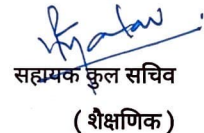 सहायक कुल सचिव
( शैक्षणिक )